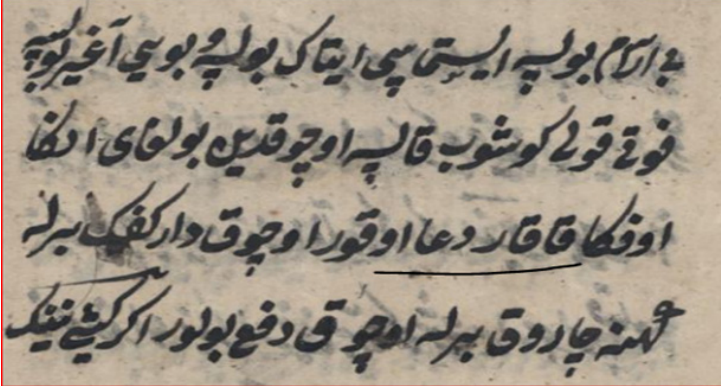 بی آرام بولسه ایستمه سی ایتاک بولسه و بویی آغیر بولسه
قوتی قولی کوشوب قالسه اوچوقدین بولغای انکا
اوفکا قاقار دعا اوقور اوچوق دارکفک بیرله
کهنه چاروق بیرله اوچوق دفع بولور اکر کیشی نینک